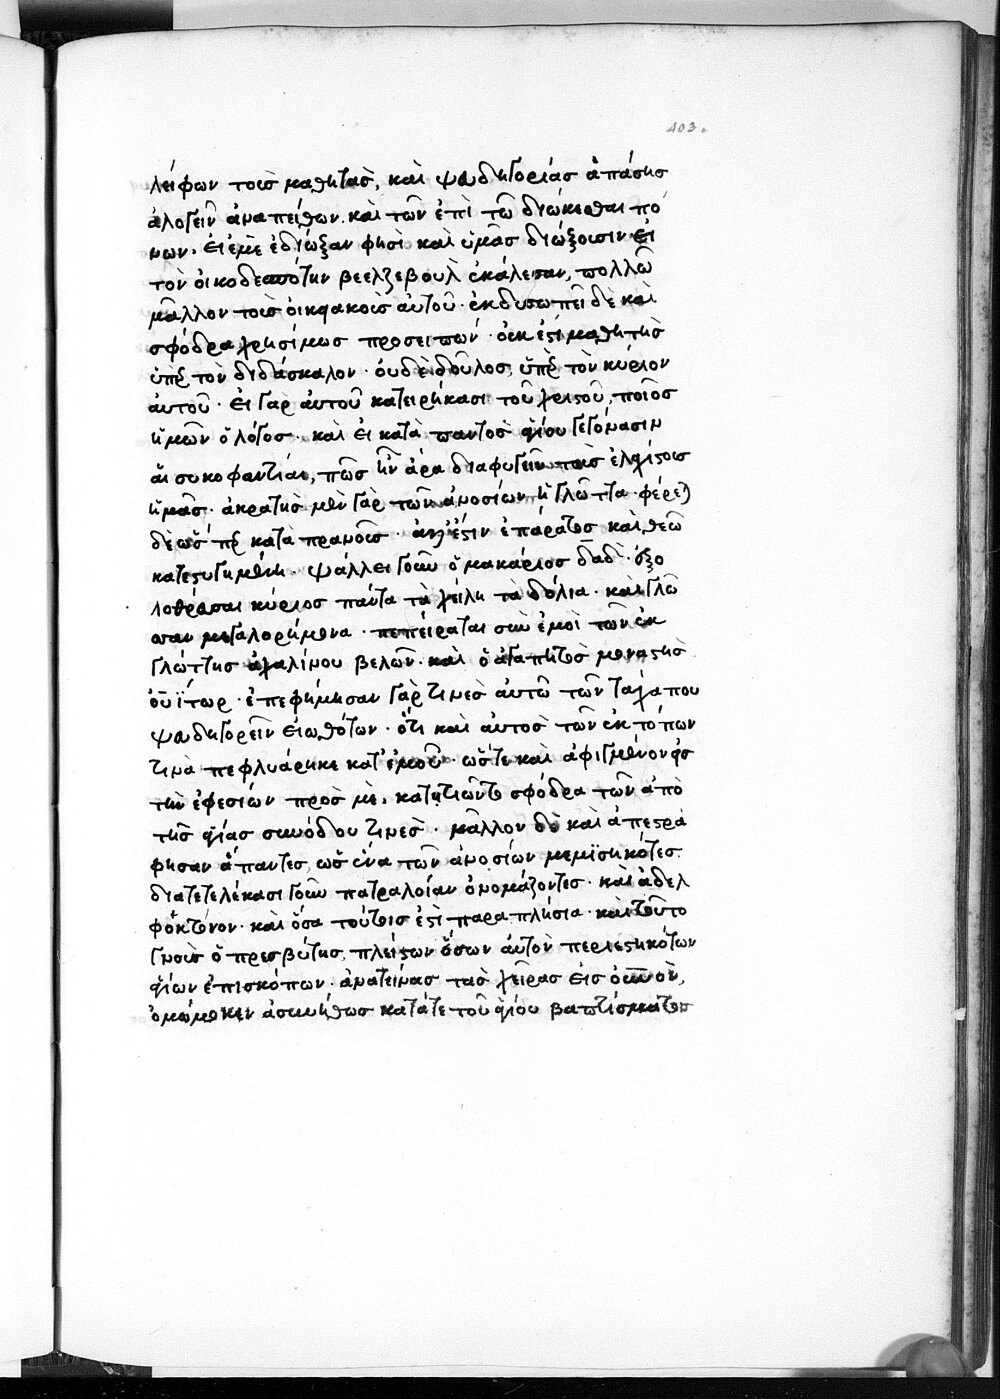 403.
λείφων τοὺς μαθητὰς, καὶ ψευδηγορίας ἁπάσης
ἀλογεῖν ἀναπείθων. καὶ τῶν ἐπὶ τῶ διώκεσθαι πό
νων. εἰ ἐμὲ ἐδίωξαν φησὶ καὶ ὑμᾶς διώξουσιν· εἰ
τὸν οἰκοδεσπότην βεελζεβοὺλ ἐκάλεσαν, πολλῶ
μᾶλλον τοὺς οἰκιακοὺς αὐτοῦ· ἐκδυσωπεῖ δὲ καὶ
σφόδρα χρησίμως προσειπών· οὐκ ἔστι μαθητὴς
ὑπὲρ τὸν διδάσκαλον· οὐδὲ δοῦλος, ὑπὲρ τὸν κύριον
αὐτοῦ· εἰ γὰρ αὐτοῦ κατειρήκασι τοῦ χριστοῦ, ποῖος
ἡμῶν ὁ λόγος· καὶ εἰ κατὰ παντὸς ἁγίου γεγόνασιν
αἱ συκοφαντίαι, πῶς ἦν ἄρα διαφυγεῖν τοὺς ἐλαχίστους
ἡμᾶς· ἀκρατὴς μὲν γὰρ τῶν ἀνοσίων ἡ γλῶττα· φέρεται
δὲ ὥσπερ κατὰ πρανοῦς· ἀλλ' ἔστιν ἐπάρατος καὶ θεῶ
κατεστυγημένη· ψάλλει γοῦν ὁ μακάριος δαδ· ἐξο
λοθρεύσαι κύριος πάντα τὰ χείλη τὰ δόλια· καὶ γλῶσ
σαν μεγαλορήμονα· πεπείραται σὺν ἐμοὶ τῶν ἐκ
γλώττης ἀχαλίνου βελῶν· καὶ ὁ ἀγαπητὸς μοναστὴς
οὐΐτωρ· ἐπεφήμησαν γάρ τινες αὐτῶ τῶν τάχα που
ψευδηγορεῖν εἰωθότων· ὅτι καὶ αὐτὸς τῶν ἐκτόπων
τινὰ πεφλυάρηκε κατ' ἐμοῦ· ὥστε καὶ ἀφιγμένον εἰς
τὴν ἐφεσίων πρὸς μὲ, κατητιῶντο σφόδρα τῶν ἀπὸ
τῆς ἁγίας συνόδου τινές· μᾶλλον δὲ καὶ ἀπεστρά
φησαν ἅπαντες, ὡς ἕνα τῶν ἀνοσίων μεμισηκότες.
διατετελέκασι γοῦν πατραλοίαν ὀνομάζοντες· καὶ ἀδελ
φόκτονον· καὶ ὅσα τούτοις ἐστὶ παραπλήσια· καὶ τοῦτο
γνοὺς ὁ πρεσβύτης, πλείστων ὅσων αὐτὸν περιεστηκότων
ἁγίων ἐπισκόπων· ἀνατείνας τὰς χεῖρας εἰς οὐνὸν,
ὀμώμοκεν ἀσυνήθως κατά τε τοῦ ἁγίου βαπτίσματος